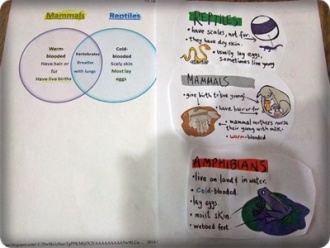 Mammals
Reptiles
Warm-
blooded
Have hair or
fur
Have live births
Vertebrates
Breathe
with lungs
Cold-
blooded
Scaly skin
Most lay
eggs
REPTILES
• have scales, not fur.
• they have dry skin.
• usually lay eggs,
sometimes live young
MAMMALS
• give birth to live young
• have hair or fur
• mammal mothers nurse
their young with milk.
• warm-blooded
AMPHIBIANS
• live on land & in water.
• cold-blooded
• lay eggs
• moist skin
• webbed feet